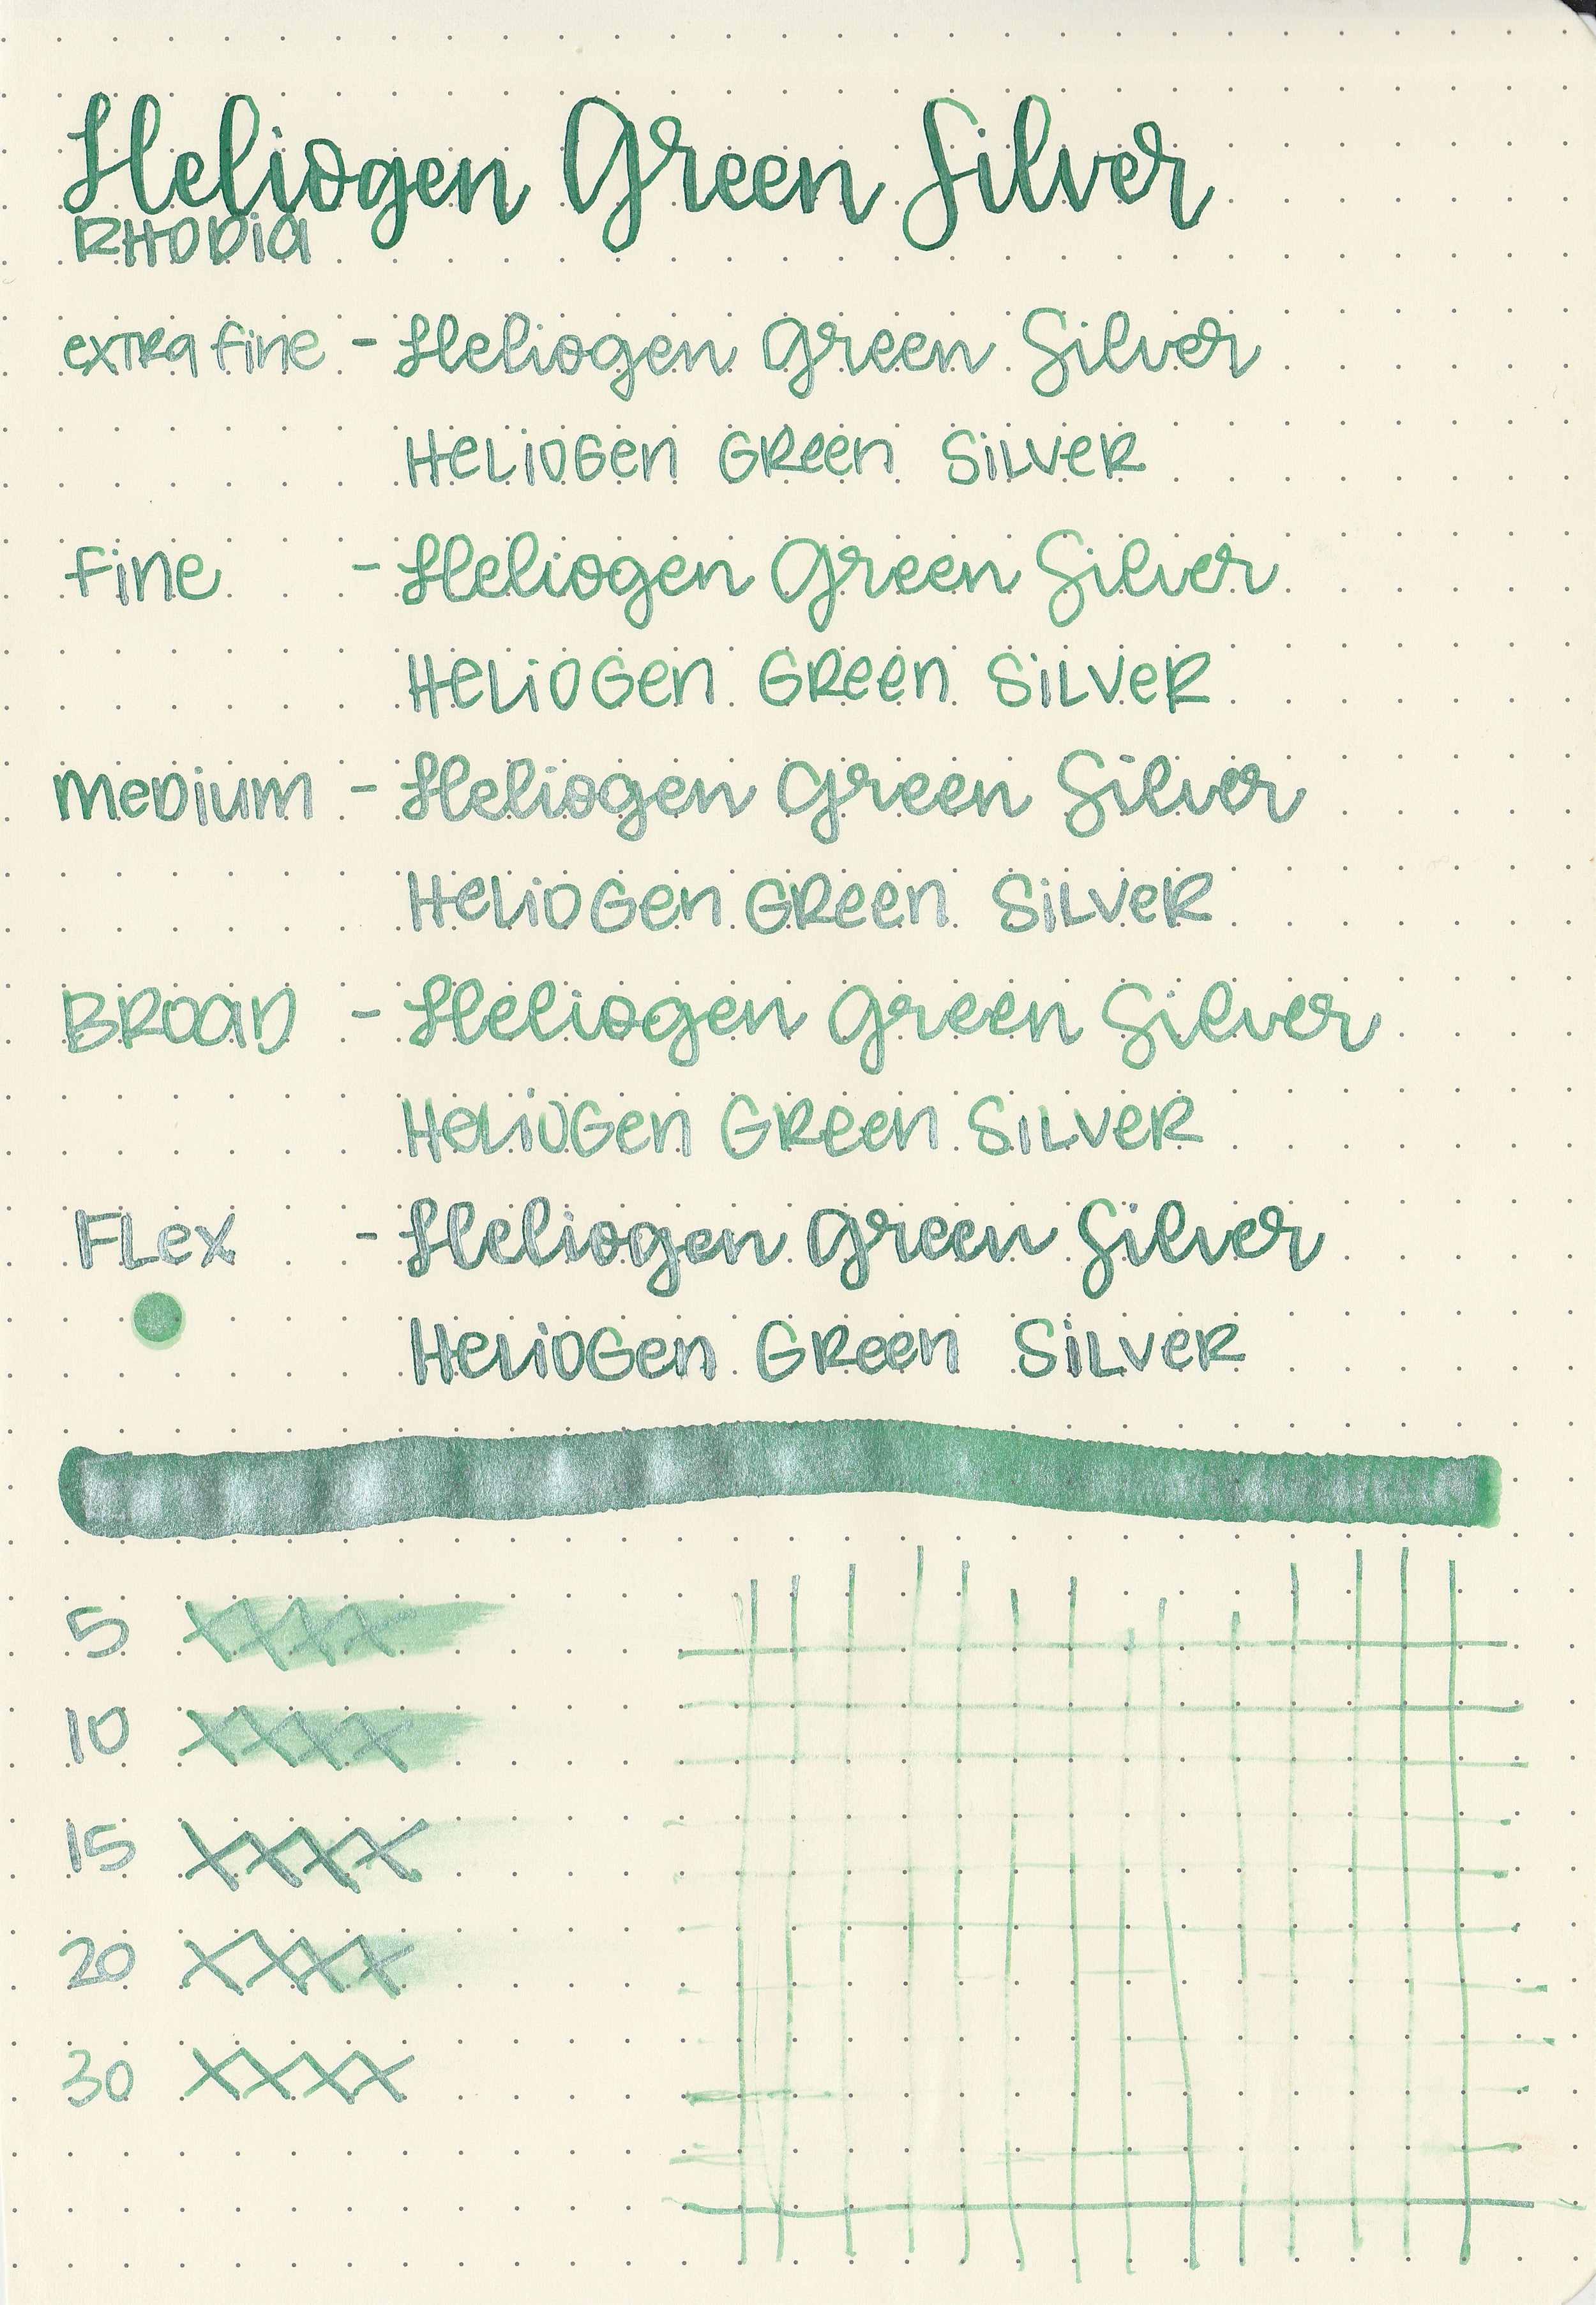 Heliogen Green Silver
RHODIA
extra fine - Heliogen Green Silver
HELIOGEN GREEN SILVER
Fine - Heliogen Green Silver
HELIOGEN GREEN SILVER
MEDIUM - Heliogen Green Silver
HELIOGEN GREEN SILVER
BROAD - Heliogen Green Silver
HELIOGEN GREEN SILVER
FLEX - Heliogen Green Silver
HELIOGEN GREEN SILVER
5 XXXX
10 XXXX
15 XXXX
20 XXXX
30 XXXX